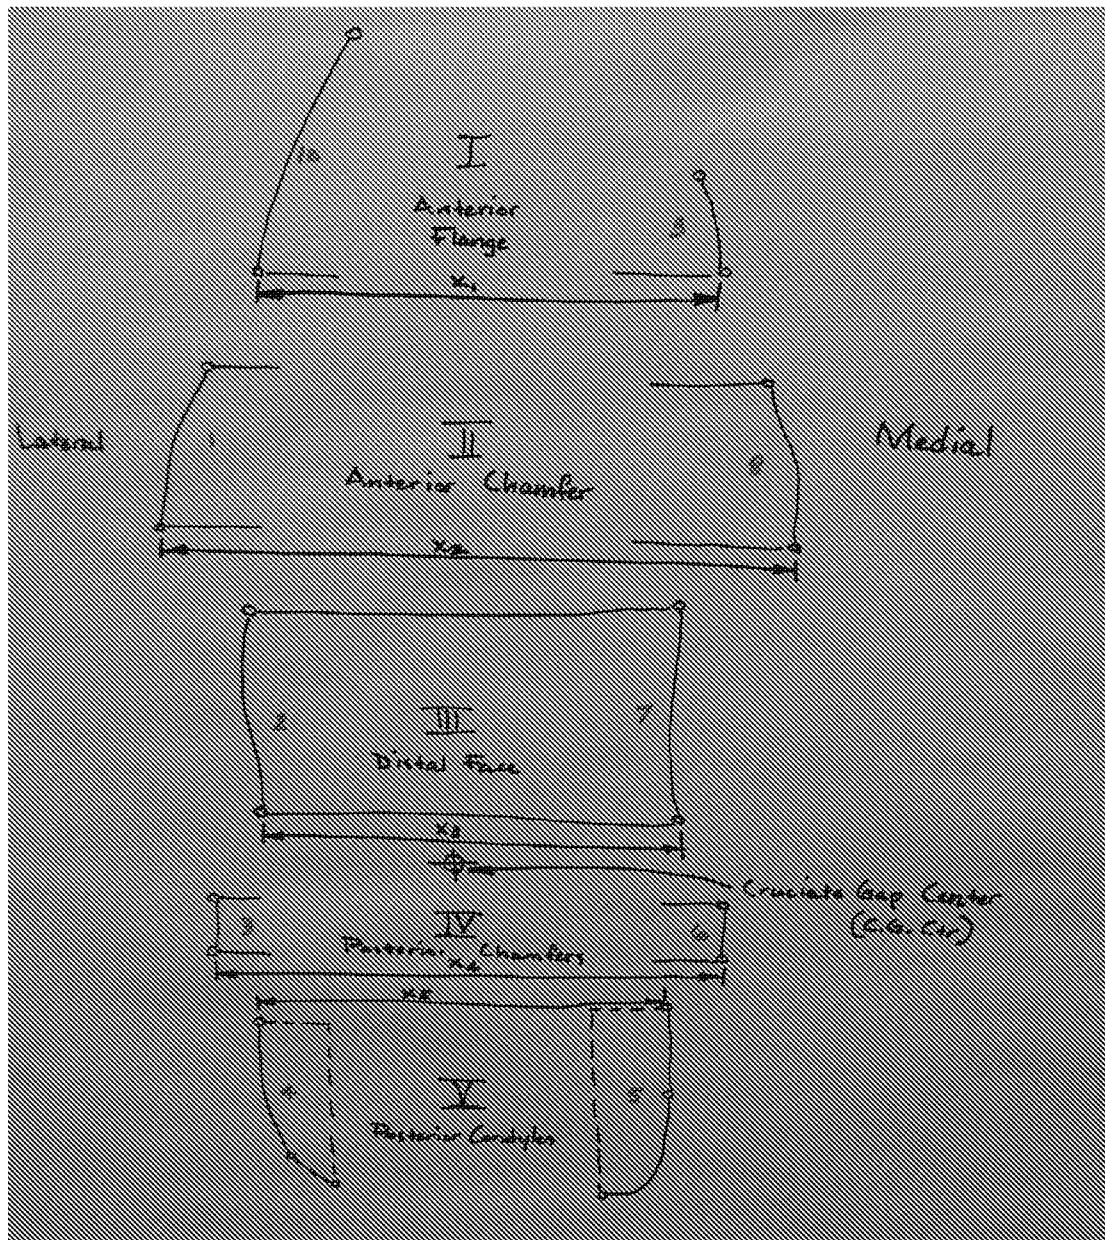 10
I
Anterior
Flange
x1
Lateral
II
Anterior Chamfer
Medial
x2
2
III
7
Distal Face
x3
Cruciate Gap Center
(C.G. Ctr)
IV
Posterior Chamfers
x4
x5
V
5
Posterior Condyles